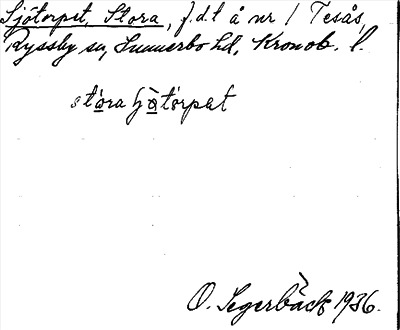 Sjötorpet, Stora, f.d. t å nr 1 Tesås,
Ryssby sn, Sunnerbo hd, Kronob. l.
stóra ʃö̀tórpət
O. Segerbäck 1936.